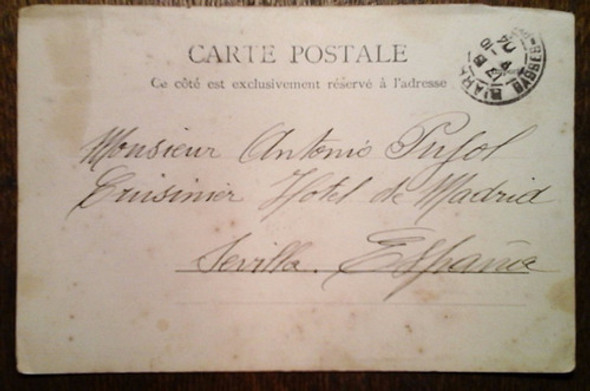 CARTE POSTALE
Ce côté est exclusivement réservé à l'adresse
Monsieur Antonio Pujol
Cuisinier Hotel de Madrid
Sevilla. España